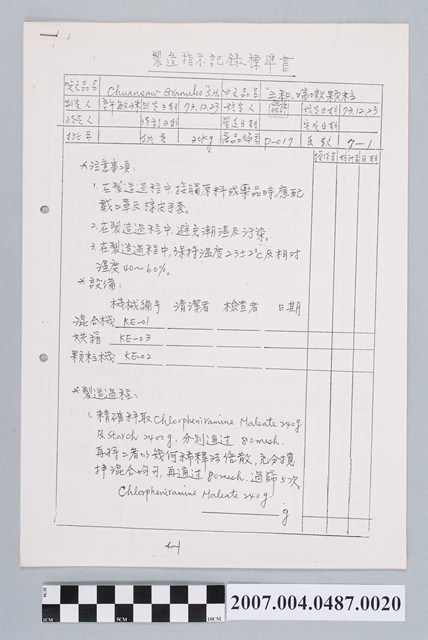 製造指示記錄標準書
英文品名 Chuansou Granules "S.H." 中文品名 "三和"喘嗽顆粒
制定人 制定日期 73.12.23 核定人 核定日期 73.12.23
修訂人 修訂日期 製造日期 完成日期
批號 批量 20kg 產品編號 D-017 頁數 7-1
操作者 校對者 日期
*注意事項:
1.在製造過程中接觸原料或藥品時,應配
戴口罩及橡皮手套。
2.在製造過程中,避免潮濕及污染。
3.在製造過程中,保持溫度23±2°C及相對
濕度40~60%。
*設備:
機械編號 清潔者 檢查者 日期
混合機 KE-01
烘箱 KE-03
顆粒機 KE-02
*製造過程:
1.精確秤取Chlorpheniramine Maleate 240g
及Starch 2400g.分別通過 80mesh.
再將二者以幾何稀釋法倍散,充分攪
拌混合均勻,再通過80mesh.過篩5次。
Chlorpheniramine Maleate 240g
g
0CM 5CM 10CM
2007.004.0487.0020